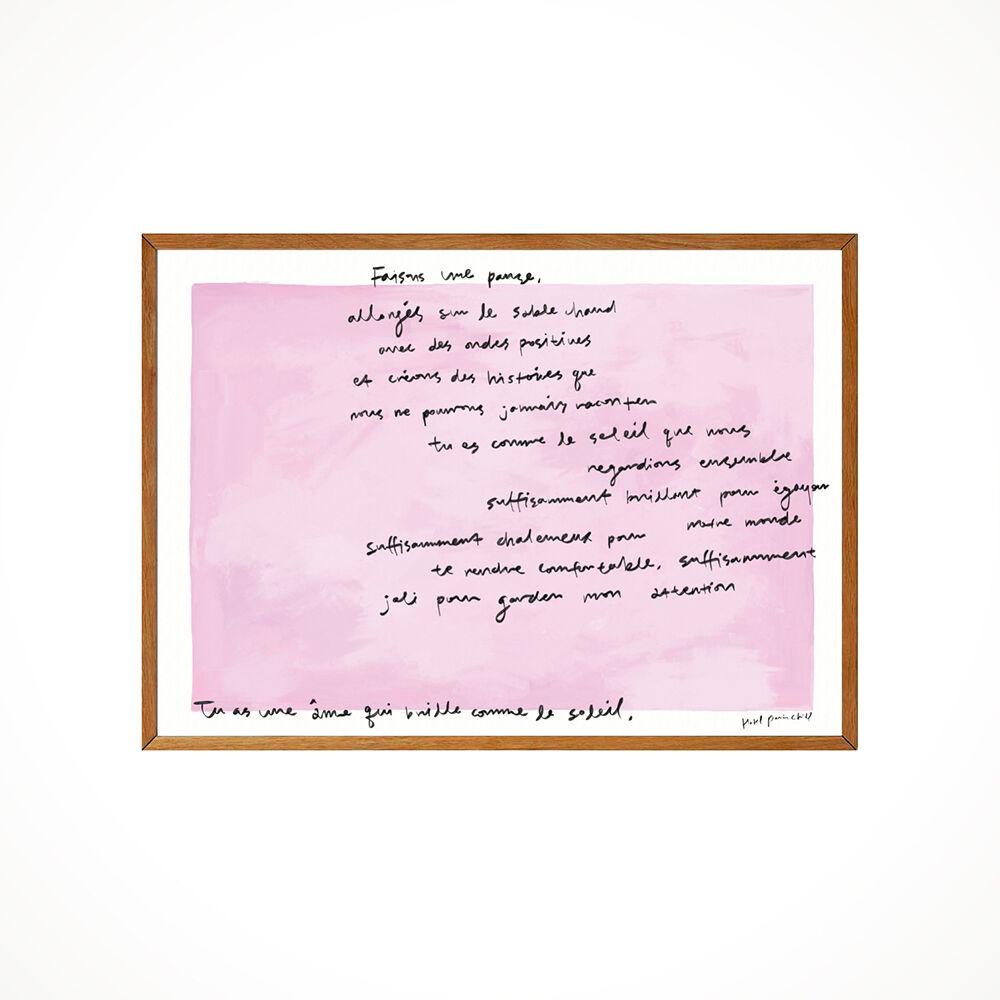 Faisons une pause,
allongés sur le sable chaud
avec des ondes positives
et créons des histoires que
nous ne pouvons jamais raconter
tu es comme le soleil que nous
regardions ensemble
suffisamment brillant pour égayer
notre monde
suffisamment chaleureux pour
te rendre comfortable, suffisamment
joli pour garder mon attention
Tu as une âme qui brille comme le soleil.